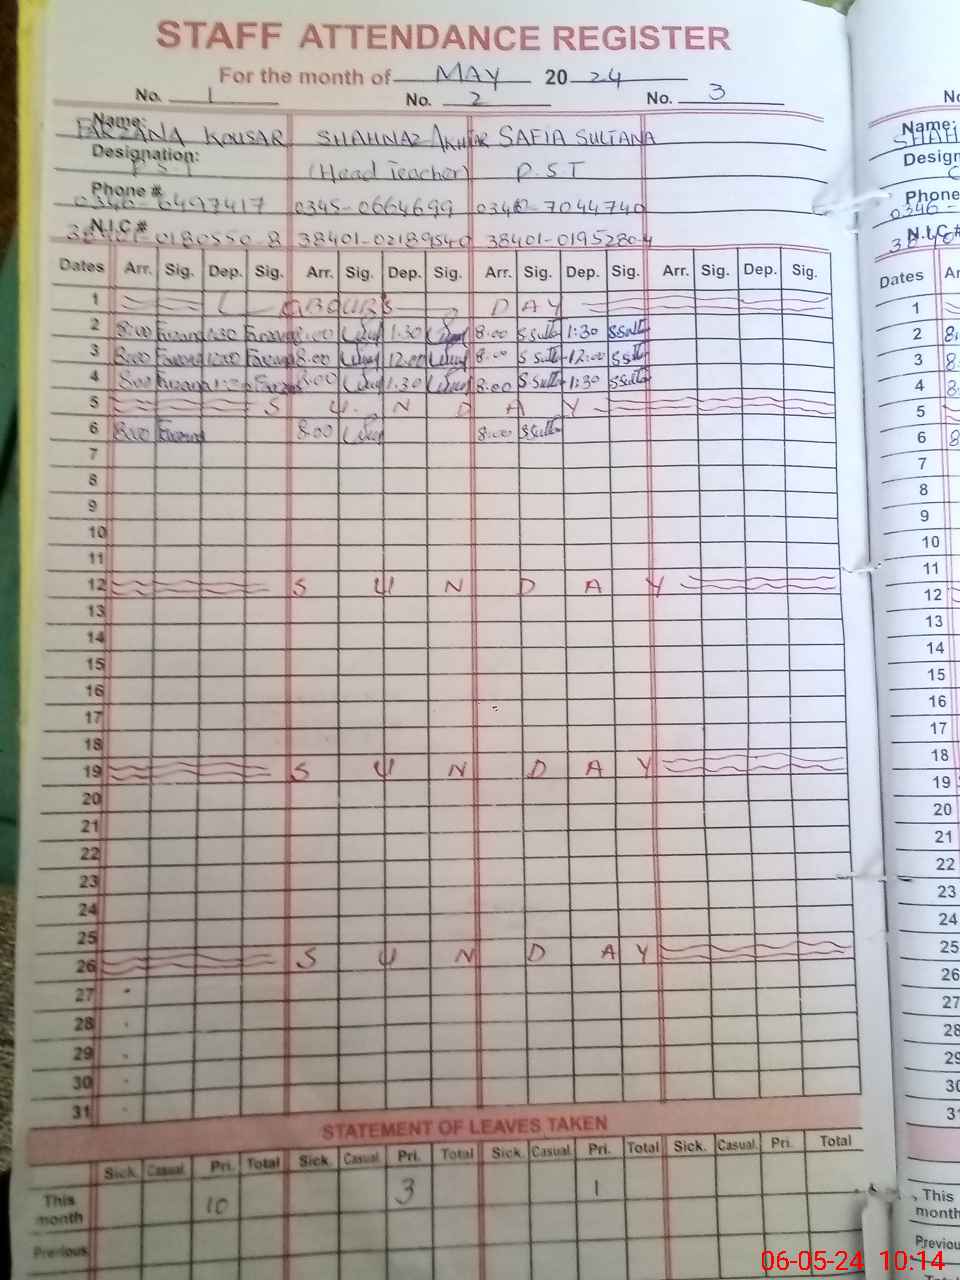 STAFF ATTENDANCE REGISTER
For the month of MAY 20 24
No. 1 No. 2 No. 3
Name: FARZANA KOUSAR SHAHNAZ AKHTAR SAFIA SULTANA
Designation: P.S.T (Head Teacher) P.S.T
Phone # 0346-6497417 0345-0664699 7044740
N.I.C # 0180550-8 38401-0218954 38401-0195280-4
Dates Arr. Sig. Dep. Sig. Arr. Sig. Dep. Sig. Arr. Sig. Dep. Sig. Arr. Sig. Dep. Sig.
1 DAY
2 8:00 Farzana 1:30 Farzana 8:00 1:30 8:00 SSult 1:30 SSult
3 8:00 Farzana 12:00 Farzana 8:00 12:00 8:00 SSult 12:00 SSult
4 8:00 Farzana 1:30 Farzana 8:00 1:30 8:00 SSult 1:30 SSult
5 SUNDAY
6 8:00 Farzana 8:00 8:00 SSult
7
8
9
10
11
12 SUNDAY
13
14
15
16
17
18
19 SUNDAY
20
21
22
23
24
25
26 SUNDAY
27
28
29
30
31
STATEMENT OF LEAVES TAKEN
Sick. Casual. Pri. Total Sick. Casual. Pri. Total Sick. Casual. Pri. Total Sick. Casual. Pri. Total
This month 10 3 1
Previous
06-05-24 10:14
Name:
Phone
0346-
N.I.C #
Dates
1
2
3
4
5
6
7
8
9
10
11
12
13
14
15
16
17
18
19
20
21
22
23
24
25
26
27
28
29
This
month